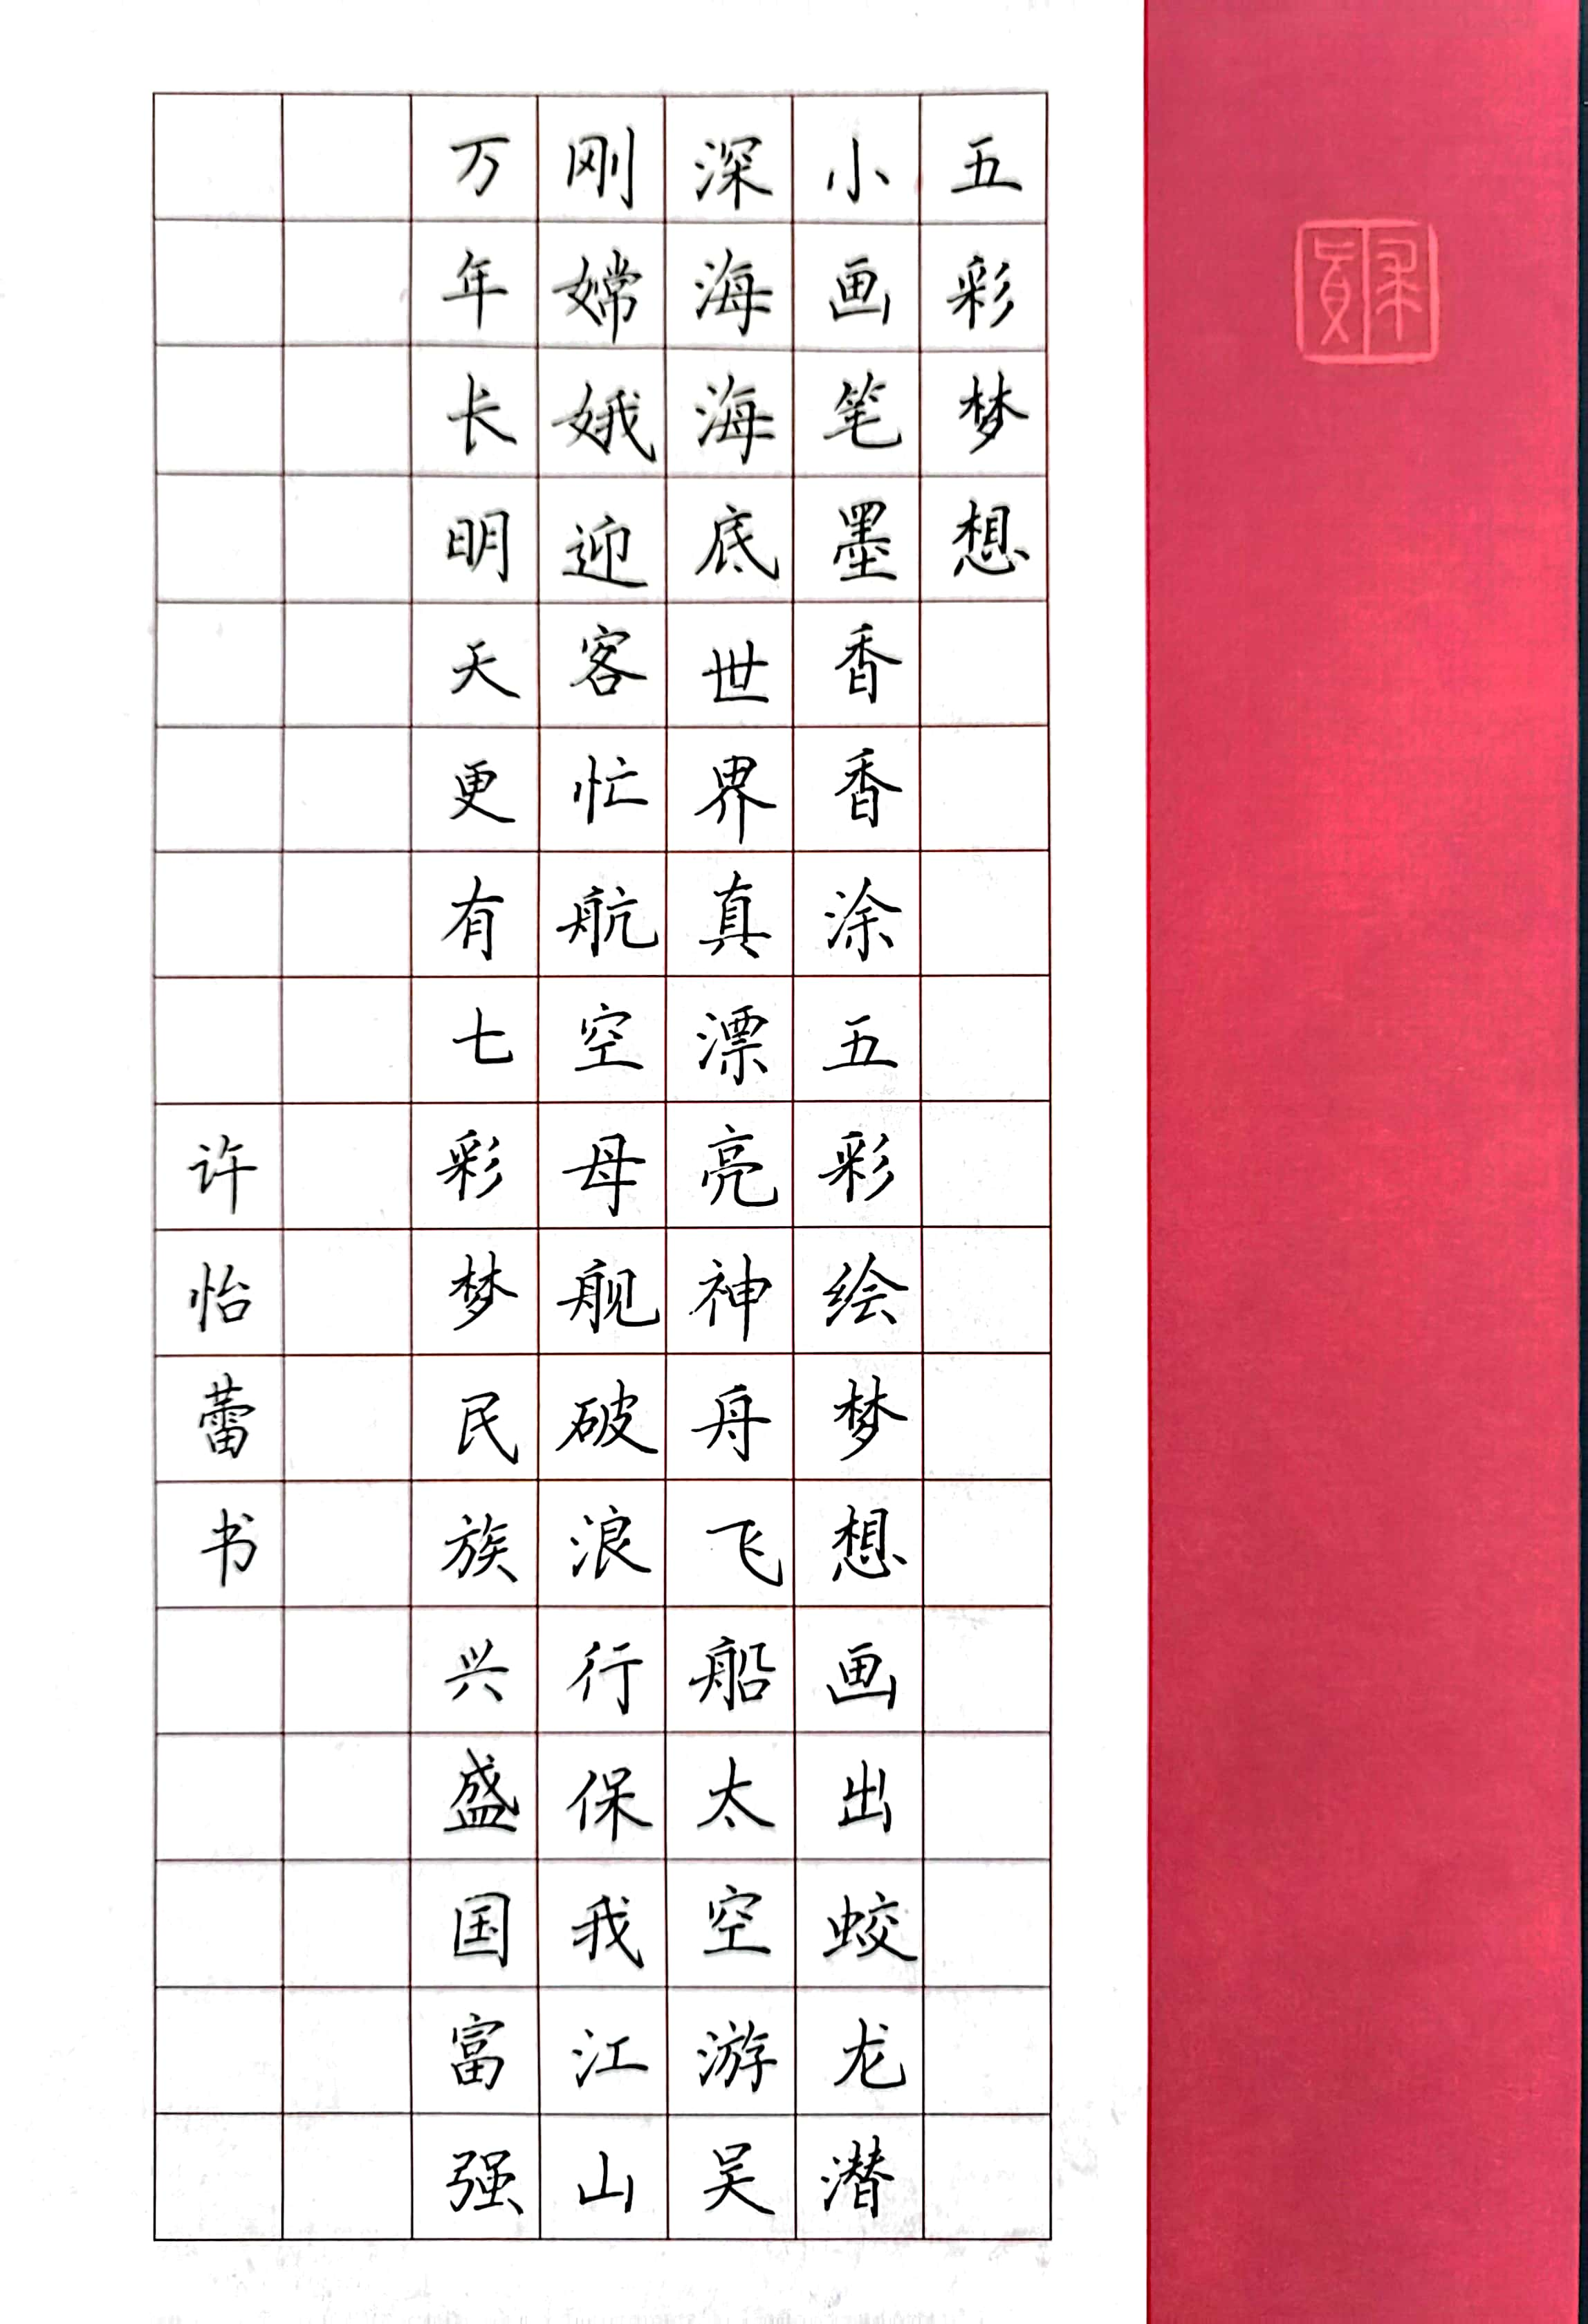 五彩梦想
小画笔墨香香涂五彩绘梦想画出蛟龙潜
深海海底世界真漂亮神舟飞船太空游吴
刚嫦娥迎客忙航空母舰破浪行保我江山
万年长明天更有七彩梦民族兴盛国富强
许怡蕾书